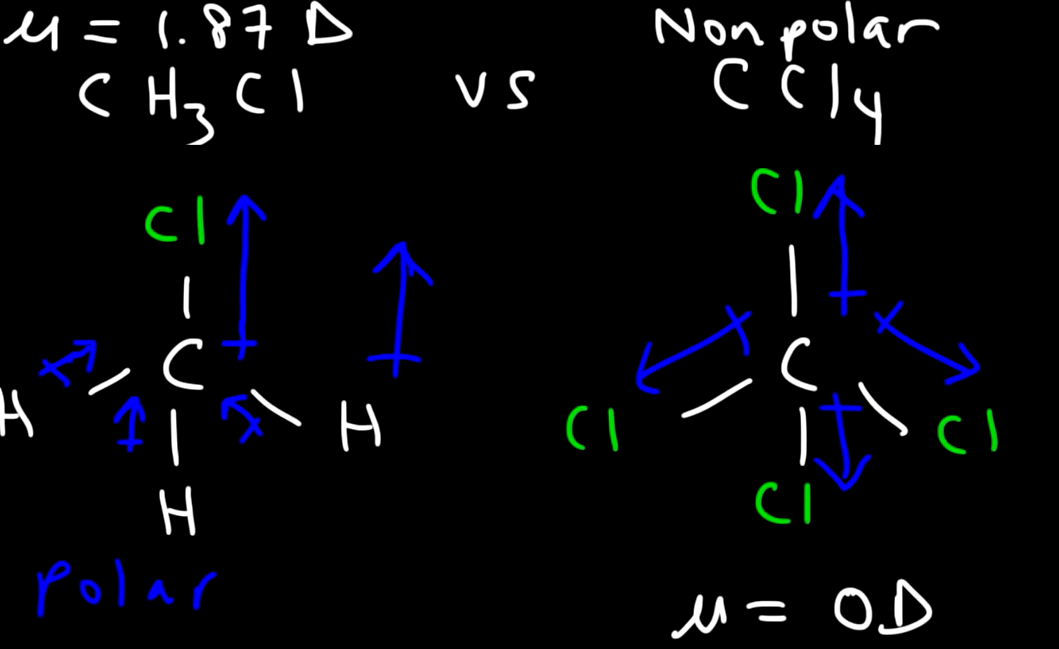 μ = 1.87 D
CH₃Cl
vs
Nonpolar
CCl₄
Cl
C
H
H
H
polar
Cl
C
Cl
Cl
Cl
μ = 0D